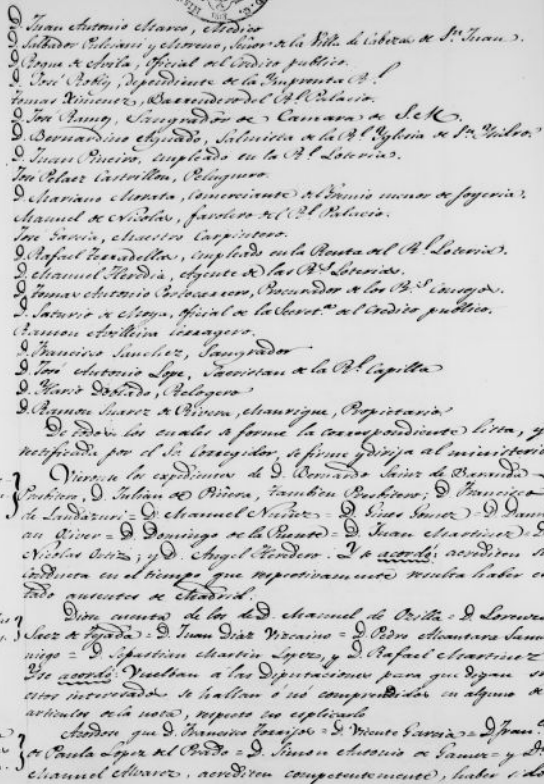 D. Juan Antonio Marco, Medico
Salbador Puliciani y Moreno, Señor de la Villa de Cabezas de Sn. Juan.
D. Roque de Avila, Oficial del Credito publico.
D. José Robly, Dependiente de la Imprenta Rl.
Tomas Ximenez, Barrendero del Rl. Palacio.
D. José Ramos, Sangrador de Camara de S.M.
D. Bernardino Aguado, Salmista de la Rl. Yglesia de Sn. Ysidro.
D. Juan Pineiro, empleado en la Rl. Loteria.
José Pelaez Castrillon, Peluquero.
D. Mariano Morata, Comerciante del Gremio menor de joyeria.
Manuel de Nicolas, farolero del Rl. Palacio.
José Garcia, Maestro Carpintero.
D. Rafael Ferradellas, empleado en la Renta del Rl. Loteria.
D. Manuel Heredia, Agente de las Rs. Loterias.
D. Tomas Antonio Portocarrero, Procurador de los Rs. Consejos.
D. Saturio de Moya, oficial de la Secret.a del Credito publico.
Ramon Avilleira
D. Francisco Sanchez, Sangrador
D. José Antonio Lope, Sacristan de la Rl. Capilla
D. Hario Doblado, Relogero
D. Ramon Suarez de Rivera, Manrique, Propietario.
De todos los cuales se forme la correspondiente lista, y
rectificada por el Sr. Corregidor, se firme y dirija al ministerio
Vieronse los expedientes de D. Bernardo Sainz de Baranda
Presbitero, D. Julian de Piñera, tambien Presbitero; D. Francisco
de Landazuri = D. Manuel Nuñez = D. Gines Gomez = D. Dami
an Oliver = D. Domingo de la Puente = D. Juan Martinez = D.
Nicolas Ortiz; y D. Angel Heredero. Y se acordó: acrediten su
conducta en el tiempo que respectivamente resulta haber es
tado ausentes de Madrid.
Diose cuenta de los de D. Manuel de Ozilla = D. Lorenzo
Saez de Tejada = D. Juan Diaz Vizcaino = D. Pedro Alcantara Sanu
= D. Sebastian Martin Lopez, y D. Rafael Martinez
Y se acordó: Vuelban á las Diputaciones para que digan si
estos interesados se hallan ó nó comprendidos en alguno de
articulos de la nota, respecto no esplicarlo
Acordose que D. Francisco Torrijos = D. Vicente Garcia = D. Fran.co
de Paula Lopez del Prado = D. Simon Antonio de Gamez = y D.
Manuel Alvarez, acrediten competentemente, haber